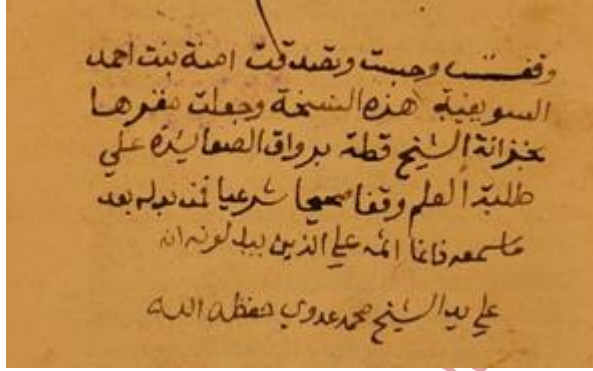 وقفت وحبست وتصدقت امنة بنت احمد
السويفية هذه النسخة وجعلت مقرها
بخزانة الشيخ قطة برواق الصعايدة علي
طلبة العلم وقفا صحيحا شرعيا فمن بدله بعد
ما سمعه فانما اثمه علي الذين يبدلونه ان
علي يد الشيخ محمد عدوي حفظه الله